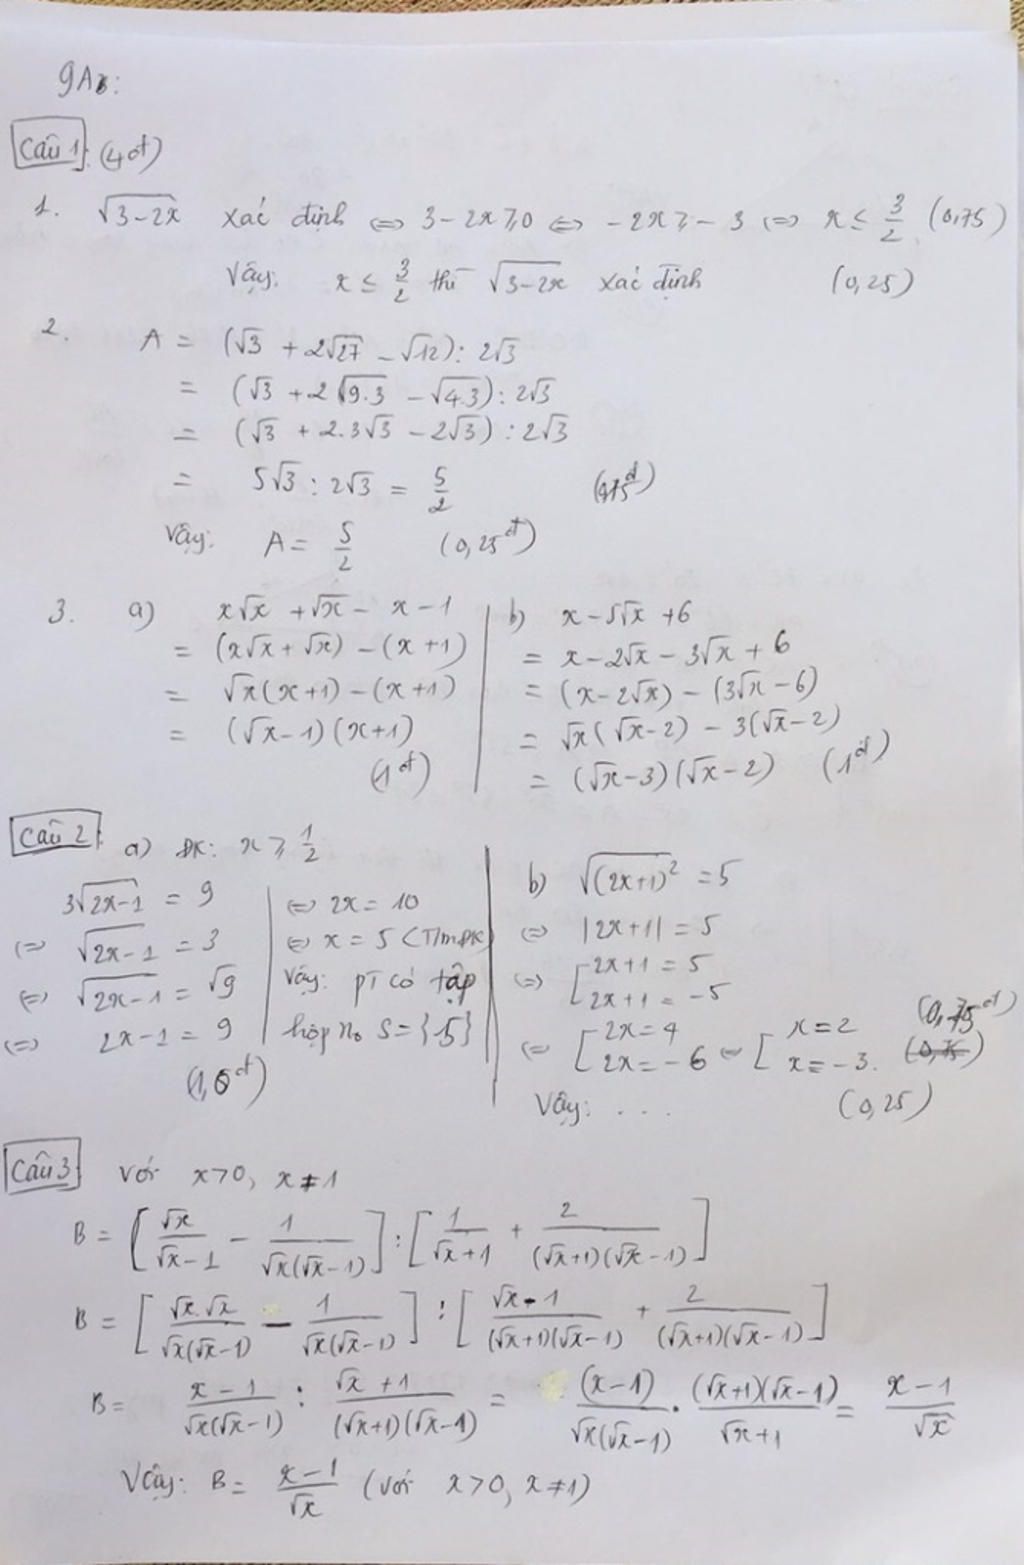 9A8:
Câu 1 (4đ)
1. √(3-2x) xác định ⇔ 3-2x ≥ 0 ⇔ -2x ≥ -3 ⇔ x ≤ 3/2 (0,75)
Vậy: x ≤ 3/2 thì √(3-2x) xác định (0,25)
2. A = (√3 + 2√27 - √12) : 2√3
= (√3 + 2√(9.3) - √(4.3)) : 2√3
= (√3 + 2.3√3 - 2√3) : 2√3
= 5√3 : 2√3 = 5/2
Vậy: A = 5/2 (0,25đ)
3. a) x√x + √x - x - 1
= (x√x + √x) - (x+1)
= √x(x+1) - (x+1)
= (√x-1)(x+1)
(1đ)
b) x - 5√x + 6
= x - 2√x - 3√x + 6
= (x-2√x) - (3√x-6)
= √x(√x-2) - 3(√x-2)
= (√x-3)(√x-2) (1đ)
Câu 2 a) ĐK: x ≥ 1/2
3√(2x-1) = 9
⇔ √(2x-1) = 3
⇔ √(2x-1) = √9
⇔ 2x-1 = 9
⇔ 2x = 10
⇔ x = 5 (T/m ĐK)
Vậy: pT có tập
hợp no S = {5}
b) √(2x+1)² = 5
⇔ |2x+1| = 5
⇔ [ 2x+1 = 5
2x+1 = -5
⇔ [ 2x = 4 ⇔ [ x = 2 (0,75đ)
2x = -6 x = -3. (0,75)
Vậy: . . . (0,25)
Câu 3 Với x>0, x≠1
B = [ √x/(√x-1) - 1/(√x(√x-1)) ] : [ 1/(√x+1) + 2/((√x+1)(√x-1)) ]
B = [ √x.√x/(√x(√x-1)) - 1/(√x(√x-1)) ] : [ (√x-1)/((√x+1)(√x-1)) + 2/((√x+1)(√x-1)) ]
B = (x-1)/(√x(√x-1)) : (√x+1)/((√x+1)(√x-1)) = (x-1)/(√x(√x-1)) . (√x+1)(√x-1)/(√x+1) = (x-1)/√x
Vậy: B = (x-1)/√x (với x>0, x≠1)